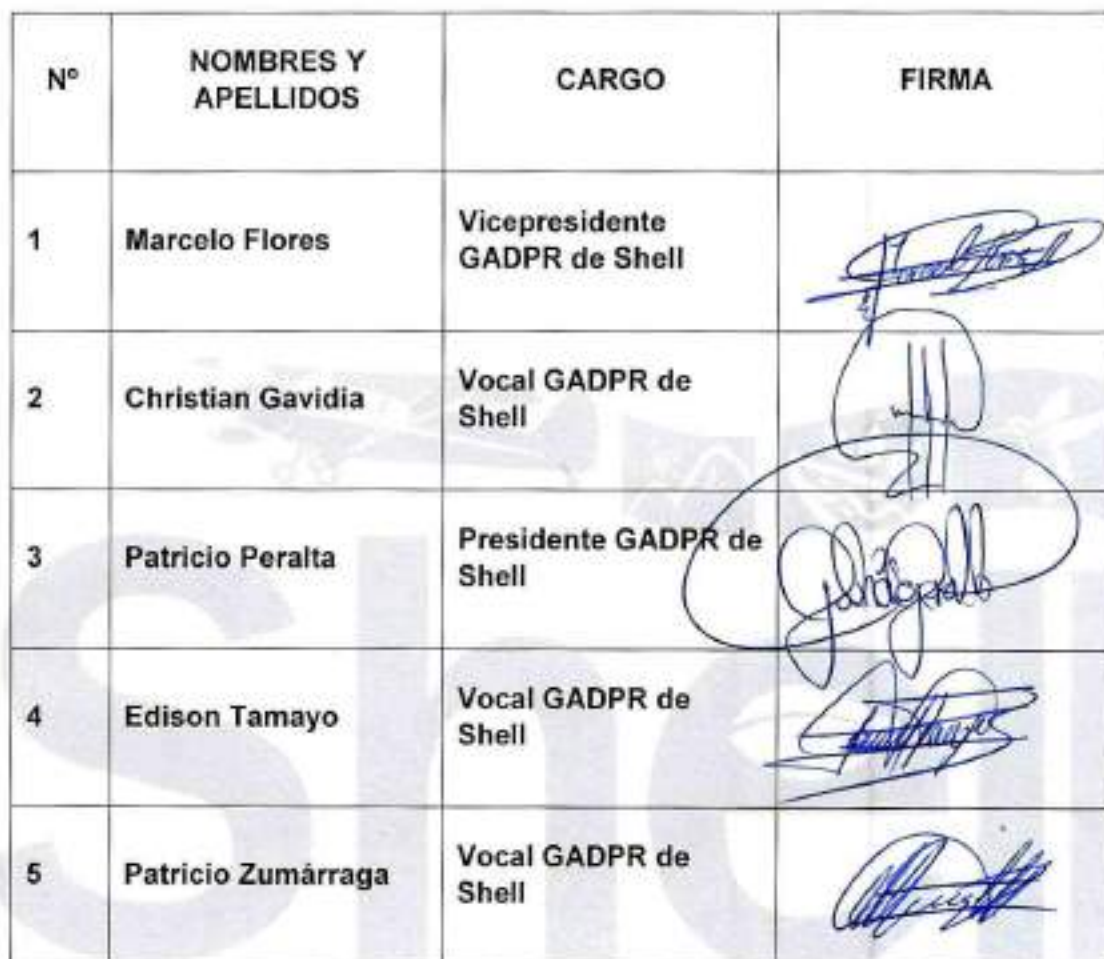 Nº
NOMBRES Y
APELLIDOS
CARGO
FIRMA
1
Marcelo Flores
Vicepresidente
GADPR de Shell
2
Christian Gavidia
Vocal GADPR de
Shell
3
Patricio Peralta
Presidente GADPR de
Shell
4
Edison Tamayo
Vocal GADPR de
Shell
5
Patricio Zumárraga
Vocal GADPR de
Shell
Shell